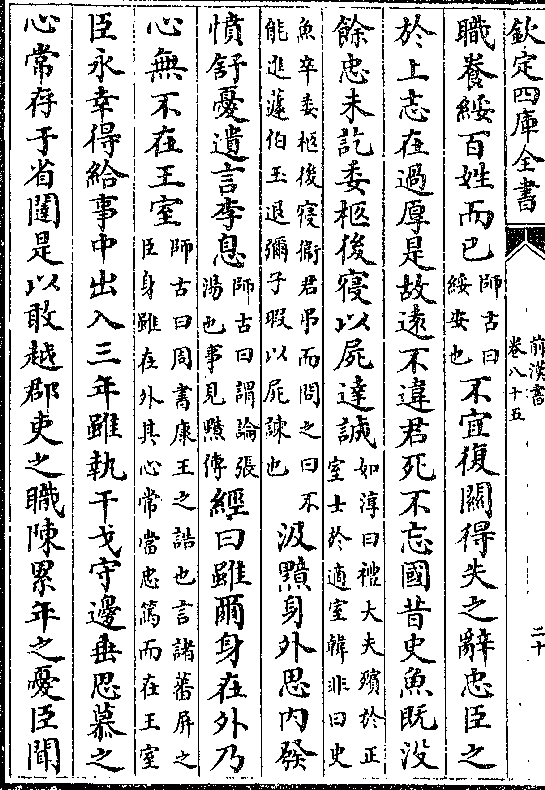 欽定四庫全書
前漢書
卷八十五
二十
職養綏百姓而已師古曰綏安也不宜復關得失之辭忠臣之
於上志在過厚是故遠不違君死不忘國昔史魚既没
餘忠未訖委柩後寢以屍達誠如淳曰禮大夫殯於正室士於適室韓非曰史
魚卒委柩後寢衛君弔而問之曰不能進蘧伯玉退彌子瑕以屍諫也汲黯身外思内發
憤舒憂遺言李息師古曰謂論張湯也事見黯傳經曰雖爾身在外乃
心無不在王室師古曰周書康王之誥也言諸蕃屏之臣身雖在外其心常當忠篤而在王室
臣永幸得給事中出入三年雖執干戈守邊垂思慕之
心常存于省闥是以敢越郡吏之職陳累年之憂臣聞